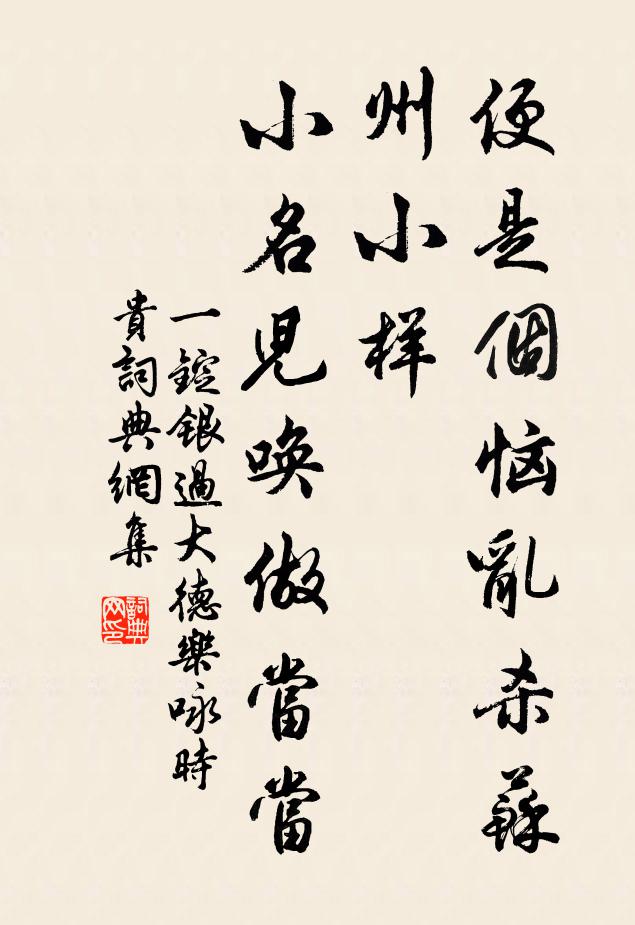 便是個恼亂杀蘇
州小样
小名児唤做當當
一錠銀過大德樂咏時
貴詞典網集
詞典
网印